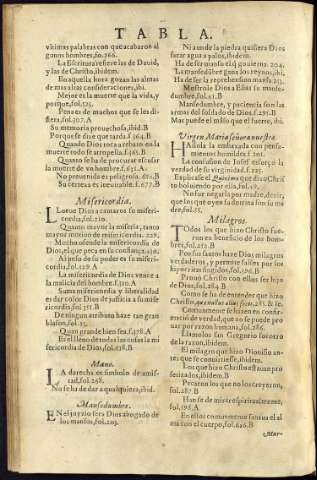 TABLA.
vltimas palabras con que acabaron al
gunos hombres, fo. 266.
La Escritura refiere las de Dauid,
y las de Christo, ibidem.
En aquella hora gozan las almas
de mas altas consideraciones, ibi.
Mejor es la muerte que la vida, y
porque, fol. 525.
Pena es de muchos que se les di-
fiera, fol. 307. A
Su memoria prouechosa, ibid. B
Porque se dize que tarda. f. 364. B
Quando Dios toca a rebato en la
muerte todo se atropella. f. 465. B
Quanto se ha de procurar escusar
la muerte de vn hombre, f. 651. A
No preuenida es peligrosa. 676. B
Su certeza es ineuitable. f. 677. B
Misericordia.
LLorue Dios a cantaros su miseri-
cordia, fol. 210.
Quanto mayor la miseria, tanto
mayor motiuo de misericordia. 228.
Mucho ofende la misericordia de
Dios, el que peca en su confiança. 275.
Al peso de su poder es su misericor
cordia, fol. 229. A
La misericordia de Dios vence a
la malicia del hombre. f. 320. A
Suma misericordia y liberalidad
es dar color Dios de justicia a su mise
ricordia, fol. 351. B
De ningun atributo haze tan gran
blason, fol. 25.
Quan grande bien sea. f. 478. A
En el lleno de todas las cosas la mi
sericordia de Dios, fol. 628. B.
Mano.
LA derecha es simbolo de amis-
tad, fol. 258.
No se ha de dar a qualquiera, ibid.
Mansedumbre.
EN el juyzio sera Dios abogado de
los mansos, fol. 203.
Ni aun de la piedra quisiera Dios
sacar agua a palos, ibidem.
Ha de ser manso el q̃ gouierna. 204.
La mansedũbre gana los reynos, ibi.
Ha de ser la reprehension mansa. 205.
Mostrole Dios a Elias su manse-
dumbre, fol. 431. B
Mansedumbre, y paciencia son las
armas del soldado de Dios. fo. 595. B.
Mas puede el miso que el hazer, ibi.
Virgen Maria señora nuestra.
HAllola la embaxada con pensa-
mientos humildes. f. 201.
La confusion de Iosef esforçò la
verdad de su virginidad. f. 225.
Explicase el, que dixo a Christo
boluiendo por ella, fol. 19.
No se negaria por madre, dezir,
que los que oyen su dotrina son su ma
dre, fol. 55.
Milagros.
TOdos los que hizo Christo fue-
ron en beneficio de los hom-
bres, fol. 253. B
Por sus santos haze Dios milagros
verdaderos, y permite falsos por los
hipocritas fingidos, fol. 196. B
Prouò Christo con ellos ser hijo
de Dios, fol. 284. B
Como se ha de entender que hizo
Christo 285. & se.
Comunmente se hizieron en confir-
meción de verdad, que no se puede pro
uar por razon humana, fol. 286.
Llamolos san Gregorio socorro
de la razon, ibidem.
El milagro que hizo Dionisio an-
tes que se conuirtiesse, ibidem.
Los que hizo Christo estauan pro
fetizados, ibidem. B
Pecaron los que no los creyeron,
fol. 287. B
Han se de mirar espiritualmente,
fol. 196. A
En ellos comunmente sanaua el al
ma con el cuerpo, fol. 626. B
Mur-